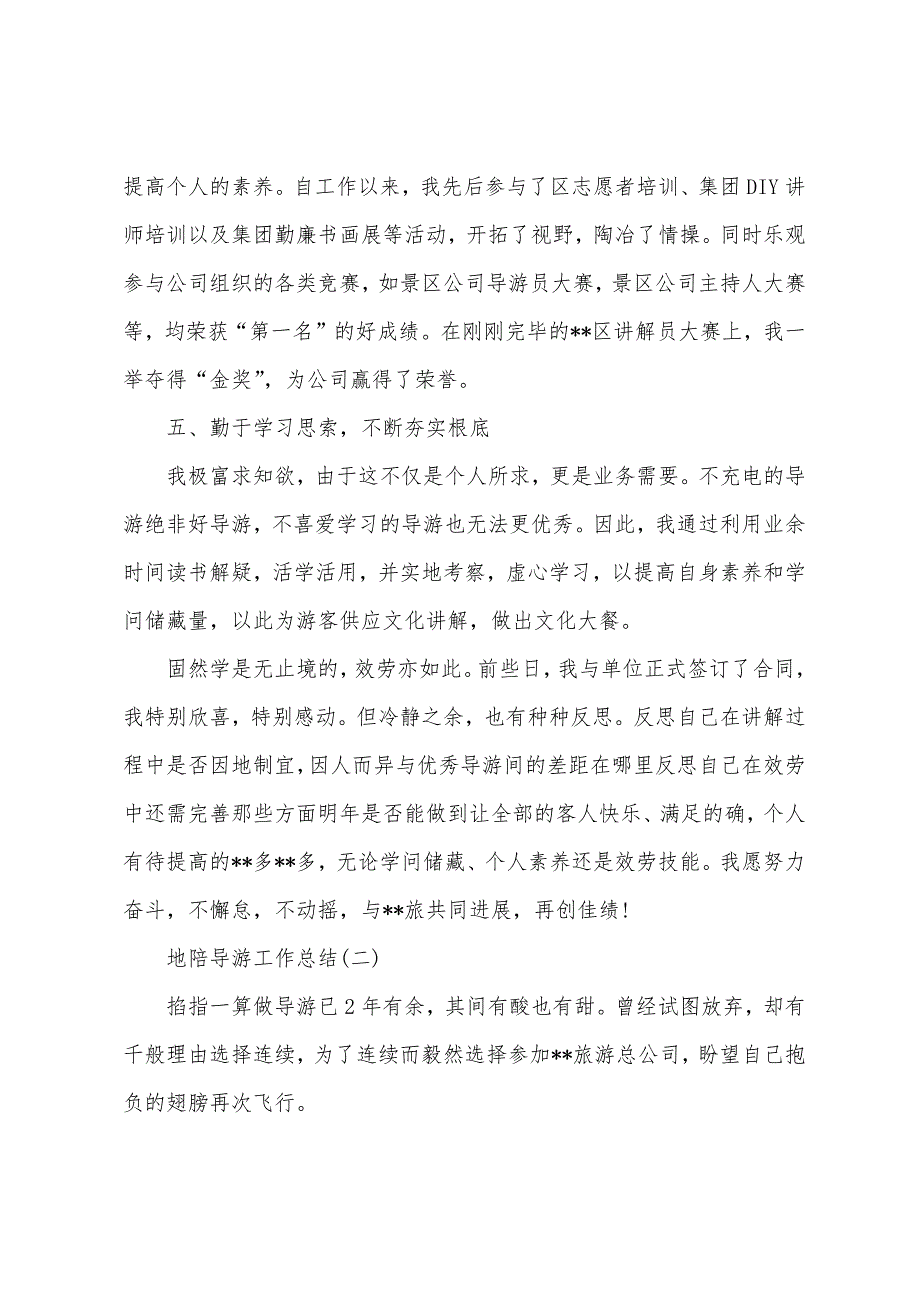 提高个人的素养。自工作以来，我先后参与了区志愿者培训、集团 DIY 讲
师培训以及集团勤廉书画展等活动，开拓了视野，陶冶了情操。同时乐观
参与公司组织的各类竞赛，如景区公司导游员大赛，景区公司主持人大赛
等，均荣获“第一名”的好成绩。在刚刚完毕的**区讲解员大赛上，我一
举夺得“金奖”，为公司赢得了荣誉。
五、勤于学习思索，不断夯实根底
我极富求知欲，由于这不仅是个人所求，更是业务需要。不充电的导
游绝非好导游，不喜爱学习的导游也无法更优秀。因此，我通过利用业余
时间读书解疑，活学活用，并实地考察，虚心学习，以提高自身素养和学
问储藏量，以此为游客供应文化讲解，做出文化大餐。
固然学是无止境的，效劳亦如此。前些日，我与单位正式签订了合同，
我特别欣喜，特别感动。但冷静之余，也有种种反思。反思自己在讲解过
程中是否因地制宜，因人而异与优秀导游间的差距在哪里反思自己在效劳
中还需完善那些方面明年是否能做到让全部的客人快乐、满足的确，个人
有待提高的**多**多，无论学问储藏、个人素养还是效劳技能。我愿努力
奋斗，不懈怠，不动摇，与**旅共同进展，再创佳绩!
地陪导游工作总结(二)
掐指一算做导游已 2 年有余，其间有酸也有甜。曾经试图放弃，却有
千般理由选择连续，为了连续而毅然选择参加**旅游总公司，盼望自己抱
负的翅膀再次飞行。